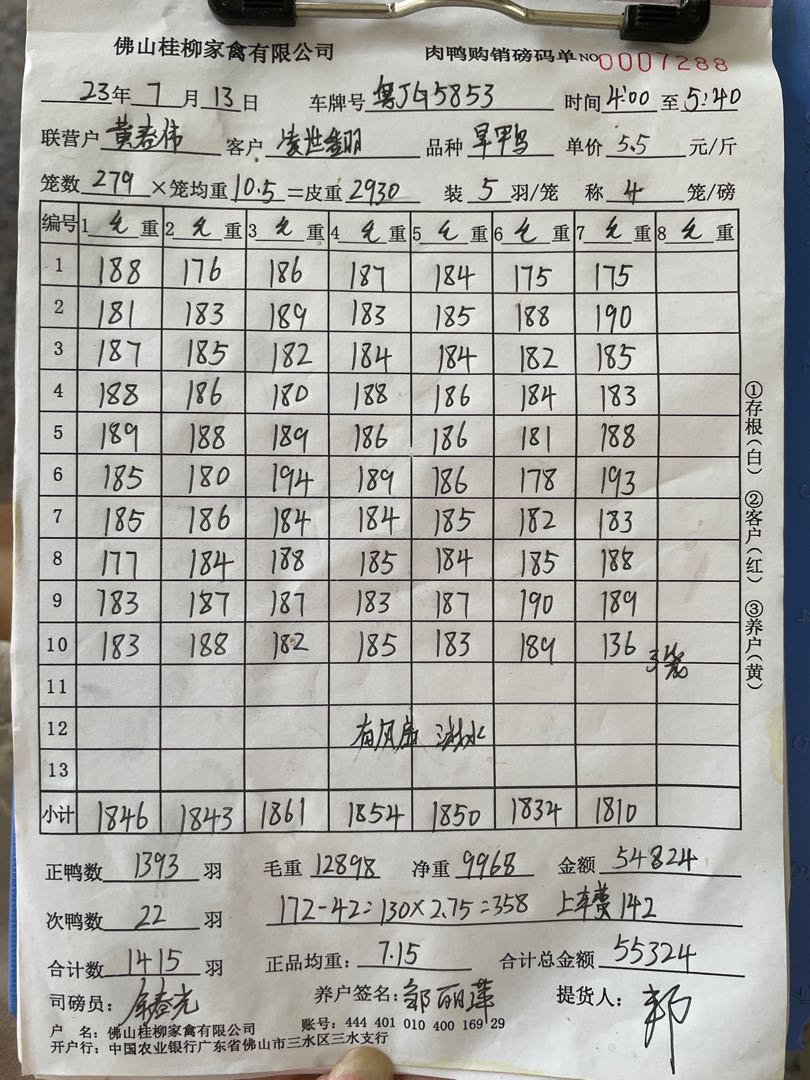 佛山桂柳家禽有限公司 肉鸭购销磅码单 NO 0007288
23年 7月 13日 车牌号 粤JG5853 时间 4:00 至 5:40
联营户 黄春伟 客户 凌世 品种 旱鸭 单价 5.5 元/斤
笼数 279 ×笼均重 10.5 =皮重 2930 装 5 羽/笼 称 4 笼/磅
编号 1 毛 重 2 毛 重 3 毛 重 4 毛 重 5 毛 重 6 毛 重 7 毛 重 8 毛 重
1 188 176 186 187 184 175 175
2 181 183 189 183 185 188 190
3 187 185 182 184 184 182 185
4 188 186 180 188 186 184 183
5 189 188 189 186 186 181 188
6 185 180 194 189 186 178 193
7 185 186 184 184 185 182 183
8 177 184 188 185 184 185 188
9 183 187 187 183 187 190 189
10 183 188 182 185 183 189 136 3笼
11
12 有风扇 淋水
13
小计 1846 1843 1861 1854 1850 1834 1810
①存根(白) ②客户(红) ③养户(黄)
正鸭数 1393 羽 毛重 12898 净重 9968 金额 54824
次鸭数 22 羽 172-42=130×2.75=358 上车费 142
合计数 1415 羽 正品均重: 7.15 合计总金额 55324
司磅员: 养户签名: 邹丽萍 提货人:
户 名: 佛山桂柳家禽有限公司 账号: 444 401 010 400 169 29
开户行: 中国农业银行广东省佛山市三水区三水支行